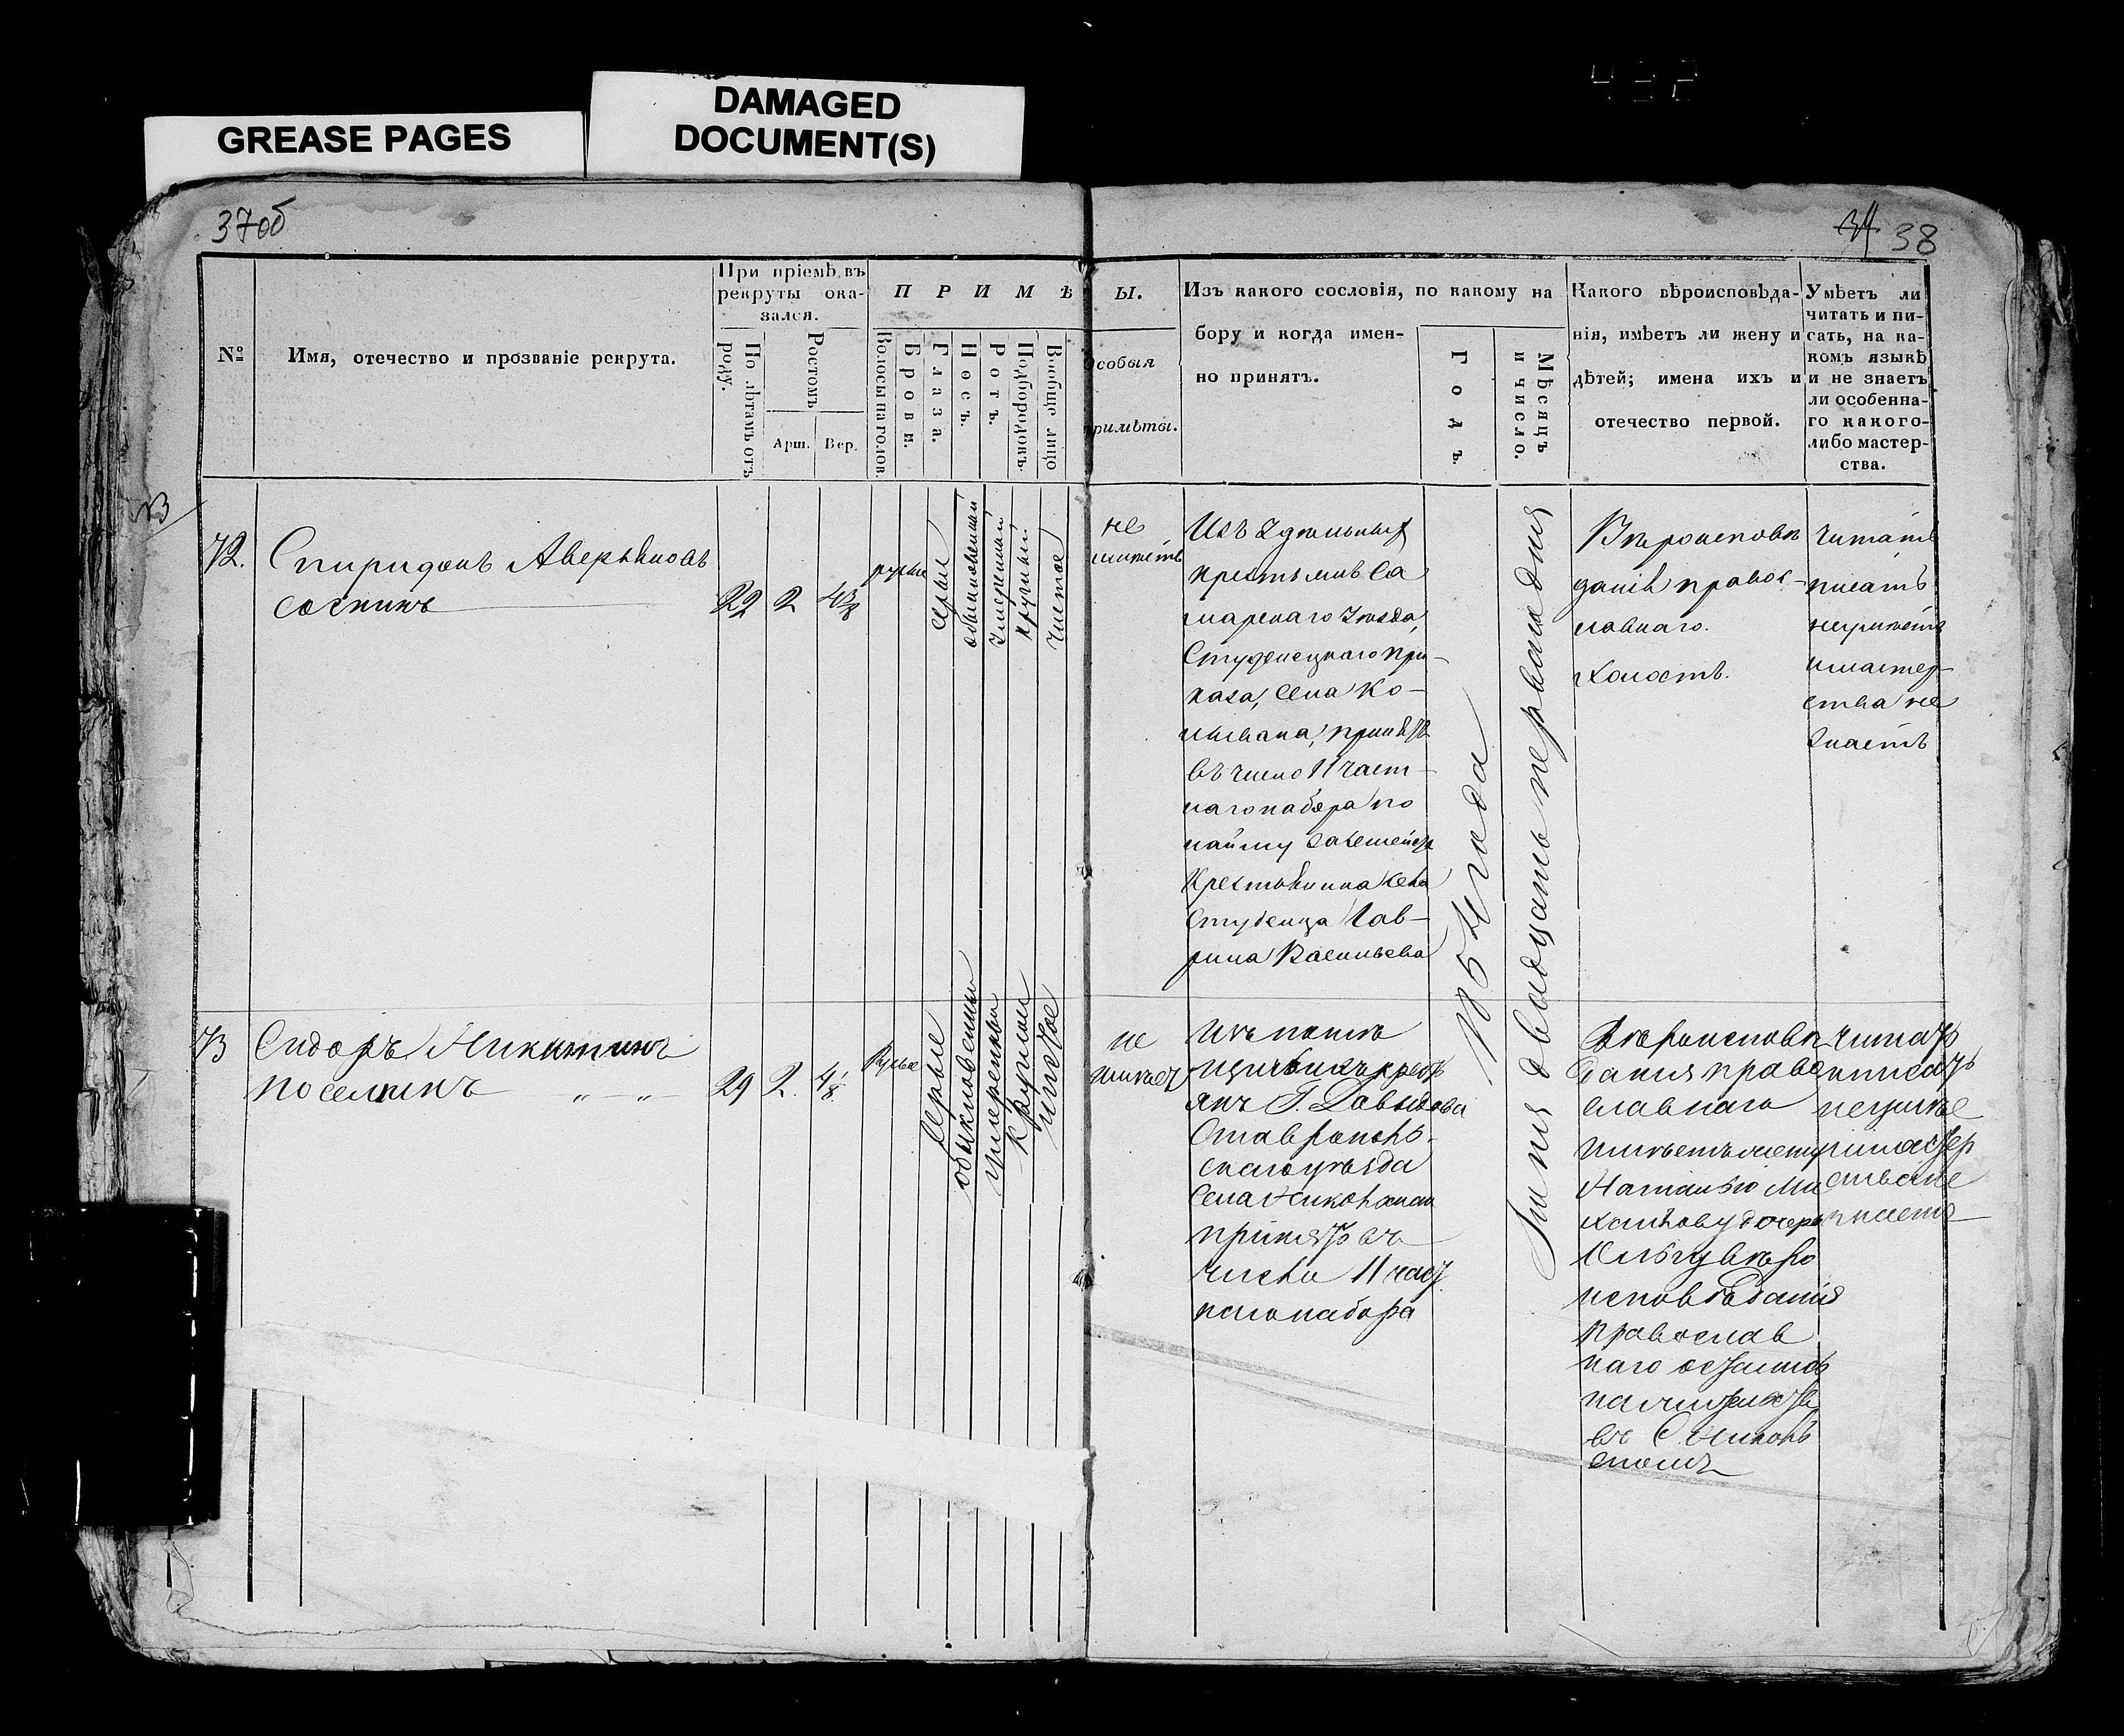 GREASE PAGES
DAMAGED
DOCUMENT(S)
37об
34 38
№
Имя, отечество и прозваніе рекрута.
При пріемѣ въ
рекруты ока-
зался.
По лѣтамъ отъ
роду.
Ростомъ
Арш.
Вер.
ПРИМѢ
Ы.
Волосы на голов.
Брови.
Глаза.
Носъ.
Ротъ.
Подбородокъ.
Вообще лицо
Особыя
примѣты.
Изъ какого сословія, по какому на
бору и когда имен-
но принятъ.
Годъ.
Мѣсяцъ
и число.
Какого вѣроисповѣда-
нія, имѣетъ ли жену и
дѣтей; имена ихъ и
отечество первой.
Умѣетъ ли
читать и пи-
сать, на ка-
комъ языкѣ
и не знаетъ
ли особенна-
го какого-
либо мастер-
ства.
72.
Спиридонъ Аверьяновъ
Соснинъ
22
2
4 3/8
русые
серые
обыкновенный
умеренный
круглый
чистое
не
имѣетъ
Изъ Удѣльныхъ
крестьянъ Са
марскаго Уѣзда,
Студенецкаго При-
каза, села Ко-
лывана, принятъ
въ число 11 част-
наго набора по
найму за
Крестьянина села
Студенца Гав-
рила Васильева
1854 года
Іюня двадцать перваго дня
Вѣроисповѣ
данія правос-
лавнаго.
Холостъ.
Читать
писать
неумѣетъ
имастер-
ства не
знаетъ
73
Сидоръ Никитинъ
Поселкинъ — „ — „ —
29
2.
4 1/8
русые
серые
обыкновенный
умеренный
круглый
чистое
не
имѣетъ
Изъ помѣ
щичьихъ крест
янъ Г. Давыдова
Ставрополь-
скаго уѣзда
Села Никольскаго
принятъ въ
число 11 част
наго набора
Вѣроисповѣ
данія право
славнаго
имѣетъ жену
Наталью Ми
хайлову дочерь
Ольгу вѣро
исповѣданія
православ
наго остались
на жительствѣ
въ С. Николь
скомъ
читать
иписать
неумѣе
имастер
ства не
знаетъ